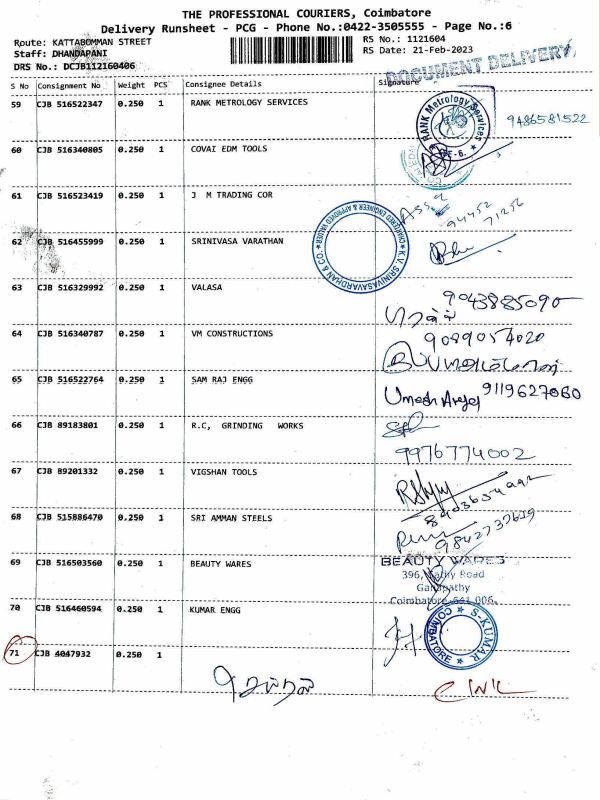 THE PROFESSIONAL COURIERS, Coimbatore
Delivery Runsheet - PCG - Phone No.:0422-3505555 - Page No.:6
Route: KATTABOMMAN STREET
Staff: DHANDAPANI
DRS No.: DCJB112160406
RS No.: 1121604
RS Date: 21-Feb-2023
DOCUMENT DELIVERY
S No Consignment No Weight PCS Consignee Details Signature
59 CJB 516522347 0.250 1 RANK METROLOGY SERVICES
RANK Metrology Services
9486581522
60 CJB 516340805 0.250 1 COVAI EDM TOOLS
61 CJB 516523419 0.250 1 J M TRADING COR
94452
71256
62 CJB 516455999 0.250 1 SRINIVASA VARATHAN
CHARTERED ENGINEER & APPROVED VALUER
K.V. SRINIVASAVARDHAN & CO.
63 CJB 516329992 0.250 1 VALASA
9043885090
64 CJB 516340787 0.250 1 VM CONSTRUCTIONS
9089054020
65 CJB 516522764 0.250 1 SAM RAJ ENGG
Umesh 9119627060
66 CJB 89183801 0.250 1 R.C, GRINDING WORKS
9976774002
67 CJB 89201332 0.250 1 VIGSHAN TOOLS
68 CJB 515886470 0.250 1 SRI AMMAN STEELS
69 CJB 516503560 0.250 1 BEAUTY WARES
BEAUTY WARES
396, Sathy Road
Ganapathy
Coimbatore-641 006.
70 CJB 516460594 0.250 1 KUMAR ENGG
S-KUMAR
COIMBATORE
71 CJB 4047932 0.250 1